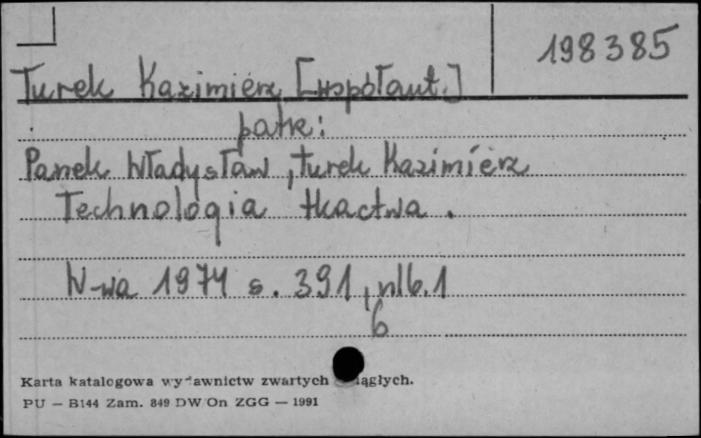 198385
Turek Kazimierz [współaut.]
patrz:
Panek Władysław, Turek Kazimierz
Technologia tkactwa.
W-wa 1974 s. 391, nlb. 1
6
Karta katalogowa wydawnictw zwartych ciągłych.
PU — B144 Zam. 849 DW/On ZGG — 1991